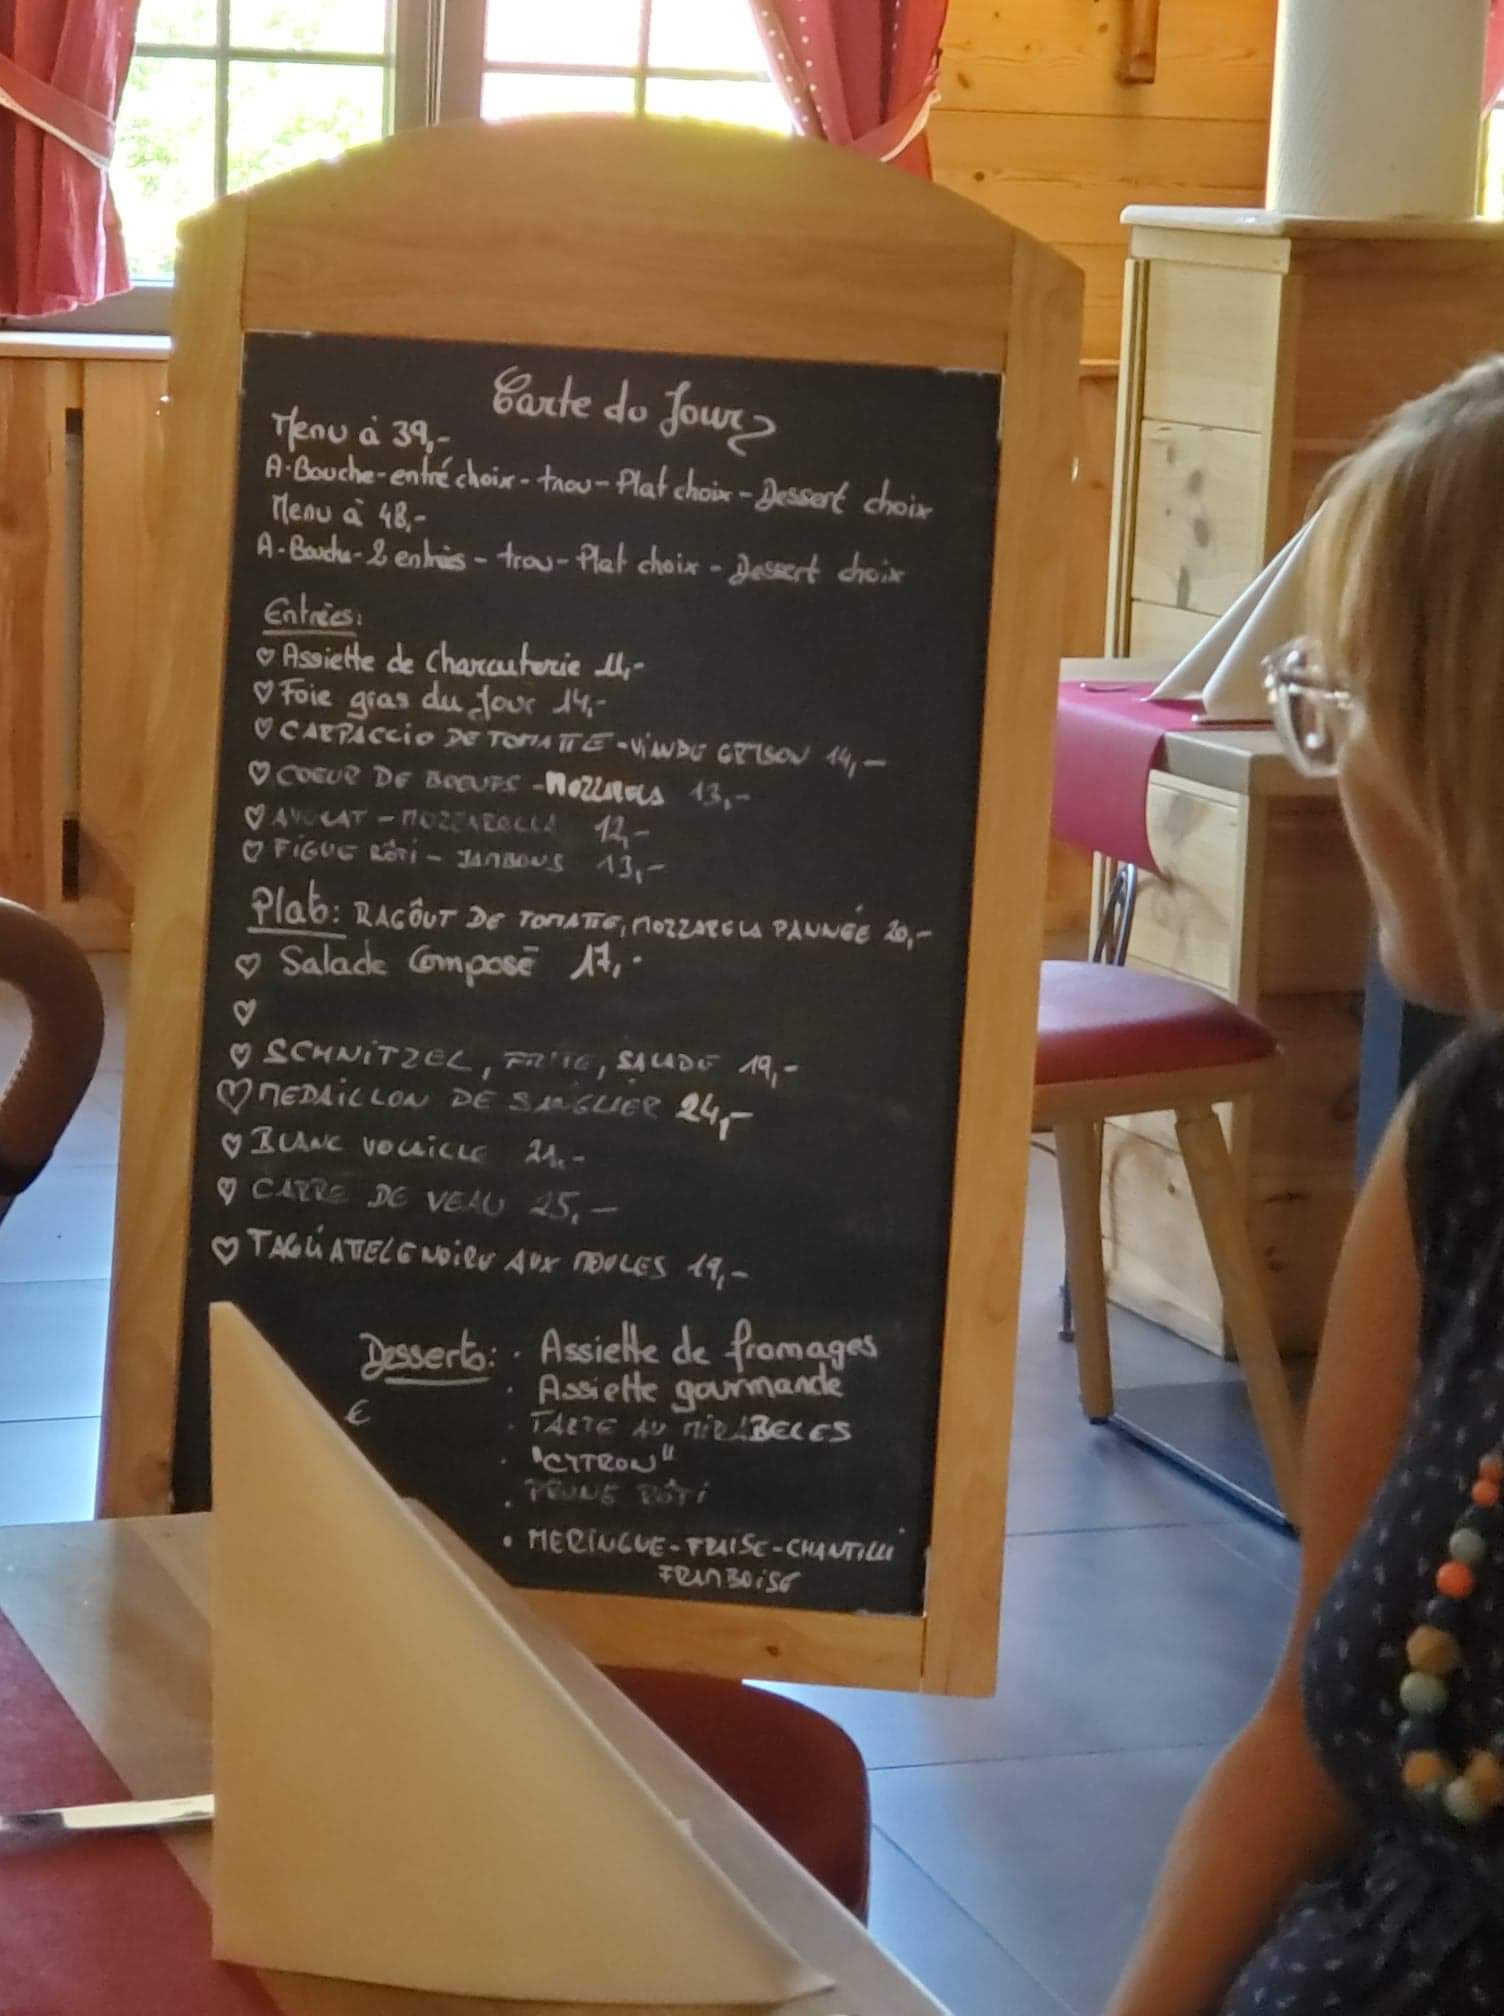 Carte du Jour
Menu à 39,-
A-Bouche-entré choix - trou - Plat choix - Dessert choix
Menu à 48,-
A-Bouche-2 entrées - trou - Plat choix - Dessert choix
Entrées:
♡ Assiette de Charcuterie 11,-
♡ Foie gras du Jour 14,-
♡ CARPACCIO DE TOMATTE - VIANDE GRISON 14,-
♡ COEUR DE BOEUFS - MOZZARELA 13,-
♡ AVOCAT - MOZZARELLA 12,-
♡ FIGUE RÔTI - JAMBONS 13,-
Plats: RAGÔUT DE TOMATTE, MOZZARELA PANNÉE 20,-
♡ Salade Composé 17,-
♡
♡ SCHNITZEL, FRITE, SALADE 19,-
♡ MEDAILLON DE SANGLIER 24,-
♡ BLANC VOLAILLE 21,-
♡ CARRE DE VEAU 25,-
♡ TAGLIATTELE NOIRE AUX MOULES 19,-
Desserts: · Assiette de fromages
· Assiette gourmande
€ · TARTE AU MIRABELES
· "CYTRON"
· PRUNE RÔTI
· MERINGUE - FRAISE - CHANTILLI
FRAMBOISE